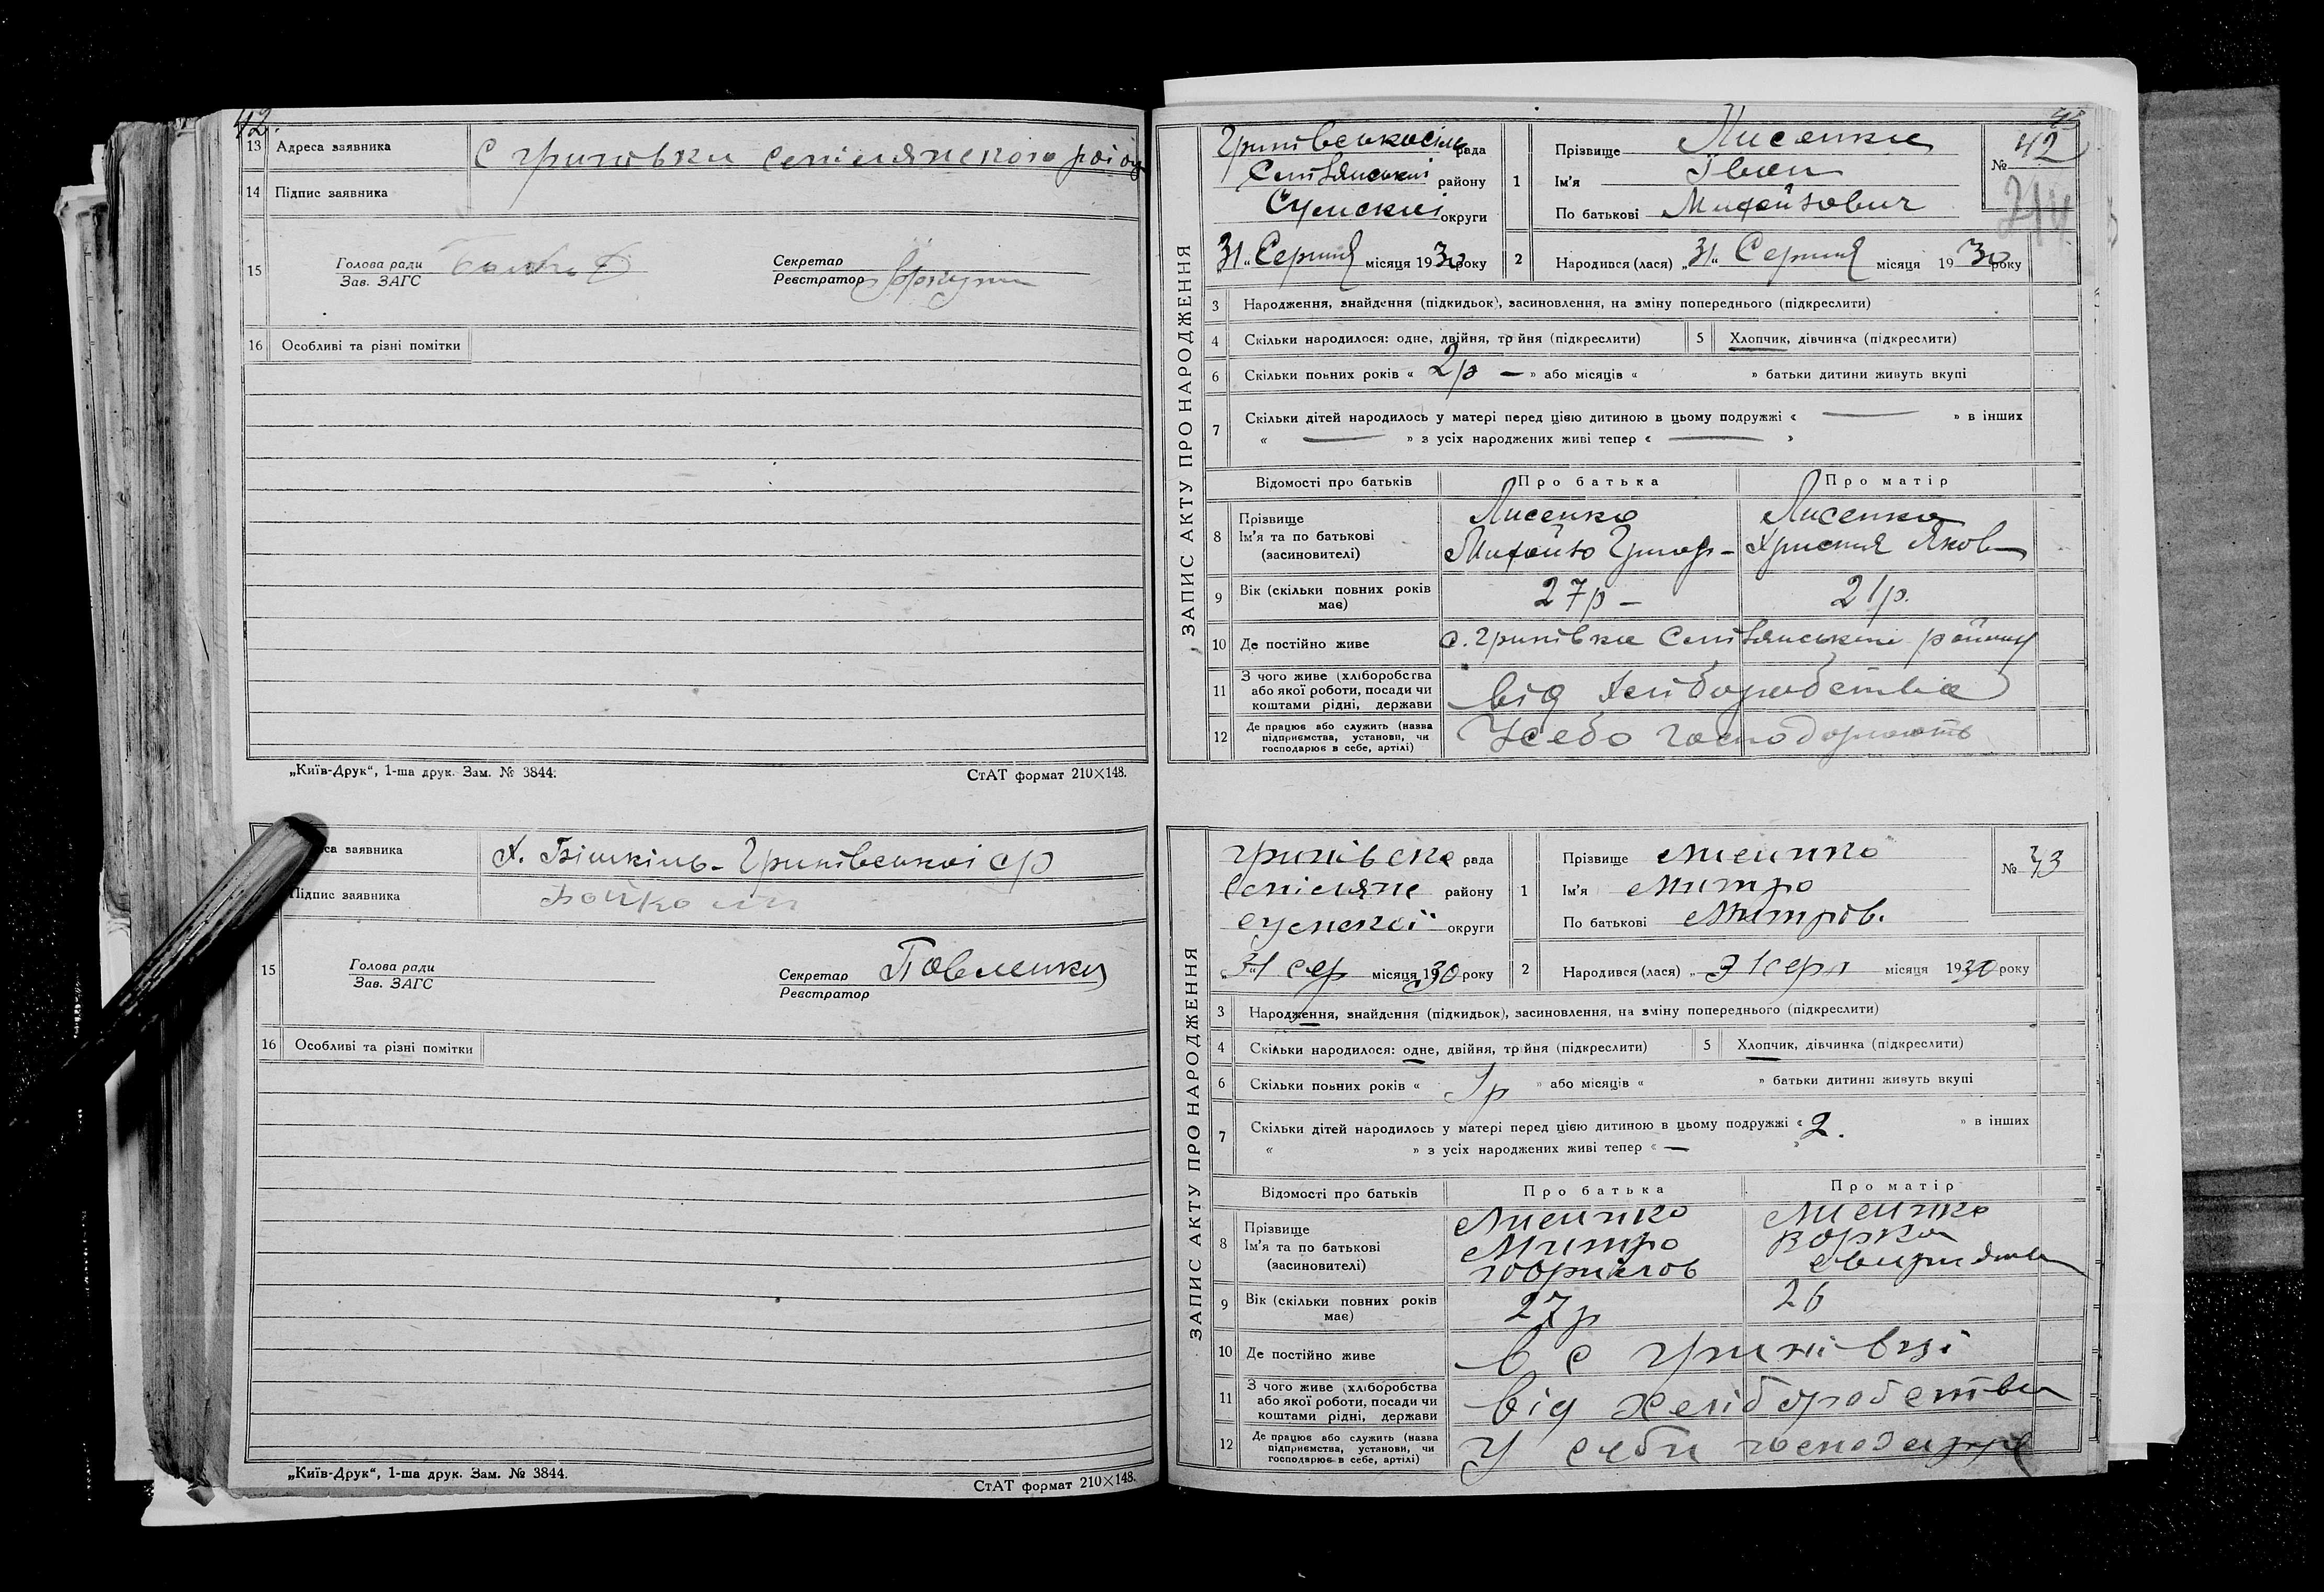 42.
13 Адреса заявника С Грунівки Смілянского району
14 Підпис заявника
15 Голова ради
Зав. ЗАГС
Секретар
Реєстратор
16 Особливі та різні помітки
„Київ-Друк“, 1-ша друк. Зам. № 3844.
СтАТ формат 210×148.
са заявника Х. Бішкінь-Грунівської с/р
Підпис заявника Бойко
15 Голова ради
Зав. ЗАГС
Секретар Павленко
Реєстратор
16 Особливі та різні помітки
„Київ-Друк“, 1-ша друк. Зам. № 3844.
СтАТ формат 210×148.
ЗАПИС АКТУ ПРО НАРОДЖЕННЯ
рада
району
Сумської округи
„31“ Серпня місяця 1930 року
1 Прізвище Лисенко
Ім'я Іван
По батькові Михайлович
№ 42
2 Народився (лася) „31“ Серпня місяця 1930 року
3 Народження, знайдення (підкидьок), засиновлення, на зміну попереднього (підкреслити)
4 Скільки народилося: одне, двійня, тр йня (підкреслити) 5 Хлопчик, дівчинка (підкреслити)
6 Скільки повних років « 2р — » або місяців « » батьки дитини живуть вкупі
7 Скільки дітей народилось у матері перед цією дитиною в цьому подружжі « — » в інших
« — » з усіх народжених живі тепер « — »
Відомості про батьків Про батька Про матір
8 Прізвище Лисенко Лисенко
Ім'я та по батькові Михайло Григор- Христя Яков
(засиновителі)
9 Вік (скільки повних років має) 27р — 21р.
10 Де постійно живе с. Грунівка району
11 З чого живе (хліборобства
або якої роботи, посади чи
коштами рідні, держави від хліборобства
12 Де працює або служить (назва
підприємства, установи, чи
господарює в себе, артілі) Усебе господарюють
ЗАПИС АКТУ ПРО НАРОДЖЕННЯ
Грунівська рада
району
Сумської округи
„31“ сер місяця 1930 року
1 Прізвище Лисенко
Ім'я Митро
По батькові Митров.
№ 43
2 Народився (лася) „31 серп місяця 1930 року
3 Народження, знайдення (підкидьок), засиновлення, на зміну попереднього (підкреслити)
4 Скільки народилося: одне, двійня, тр йня (підкреслити) 5 Хлопчик, дівчинка (підкреслити)
6 Скільки повних років « р » або місяців « » батьки дитини живуть вкупі
7 Скільки дітей народилось у матері перед цією дитиною в цьому подружжі « 2. » в інших
« » з усіх народжених живі тепер « — »
Відомості про батьків Про батька Про матір
8 Прізвище Лисенко Лисенко
Ім'я та по батькові Митро
(засиновителі)
9 Вік (скільки повних років має) 27р 26
10 Де постійно живе в с Грунівці
11 З чого живе (хліборобства
або якої роботи, посади чи
коштами рідні, держави від хліборобства
12 Де працює або служить (назва
підприємства, установи, чи
господарює в себе, артілі) У себе господарює